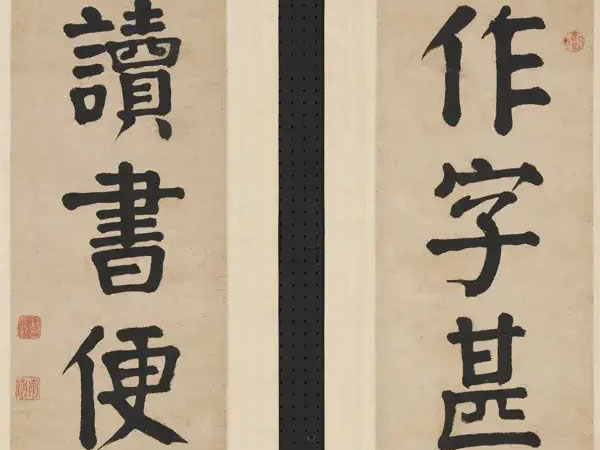 作字甚
讀書便